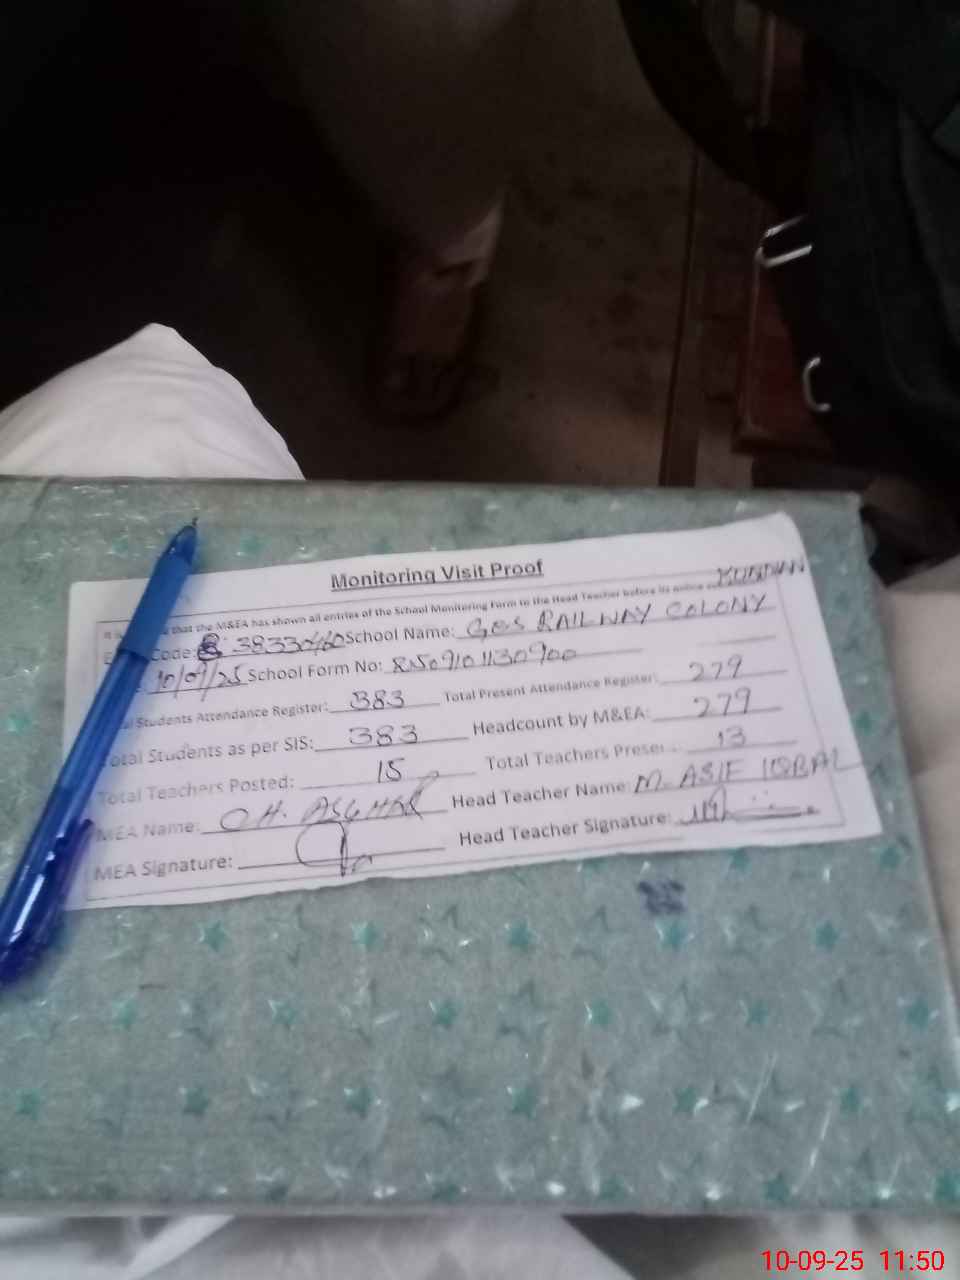 Monitoring Visit Proof
It is that the M&EA has shown all entries of the School Monitoring Form to the Head Teacher before its online KUNDIAN
Code: 38330460 School Name: GES RAILWAY COLONY
10/09/25 School Form No: 8509101130900
Students Attendance Register: 383 Total Present Attendance Register: 279
Total Students as per SIS: 383 Headcount by M&EA: 279
Total Teachers Posted: 15 Total Teachers Present: 13
MEA Name: CH. ASGHAR Head Teacher Name: M. ASIF IQBAL
MEA Signature: Head Teacher Signature:
10-09-25 11:50